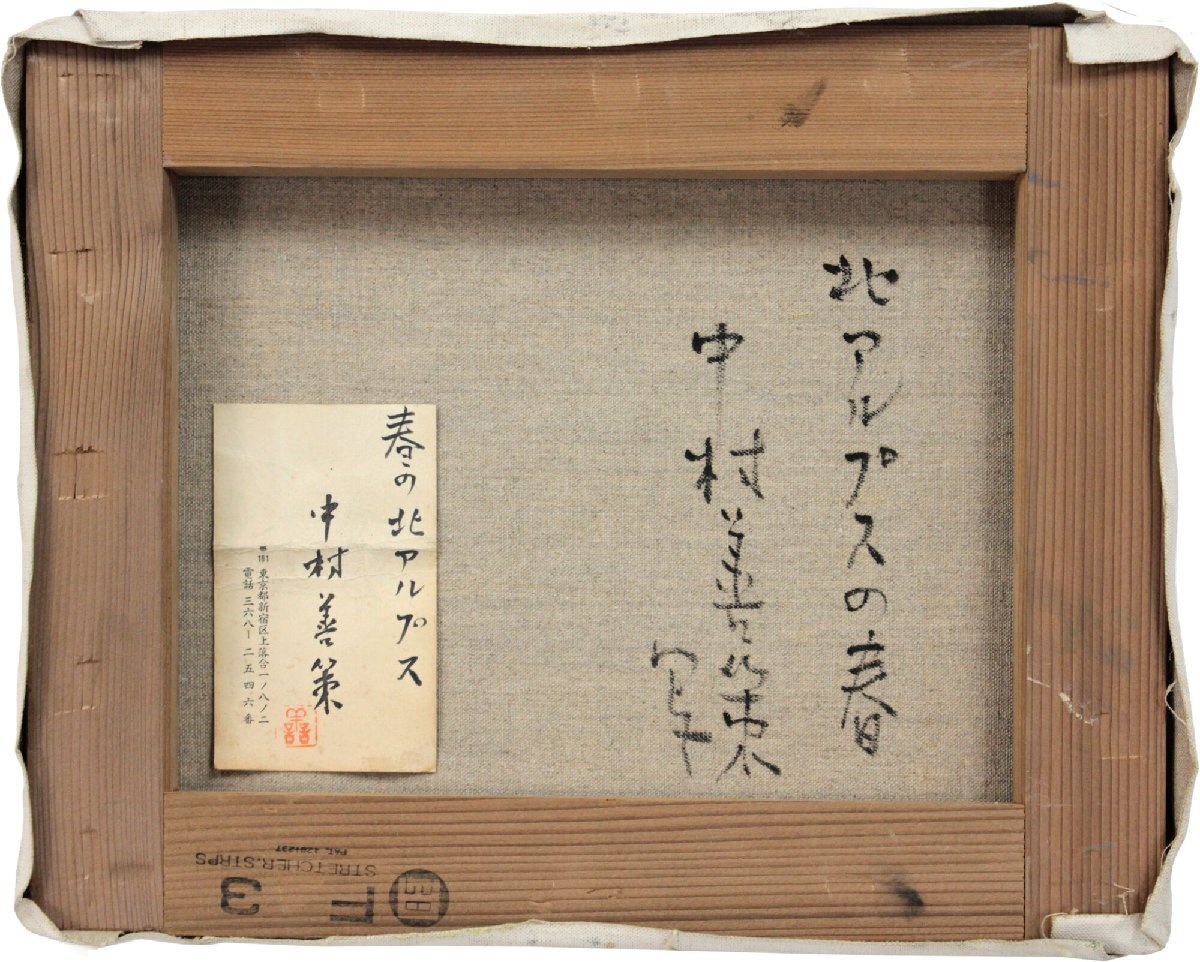 北アルプスの春
中村善策
写
春の北アルプス
中村善策
〒161 東京都新宿区上落合一ノ八ノ二
電話 三六八ー二五四六番
F 3
STRETCHER.STRPS
PAT. 4291237